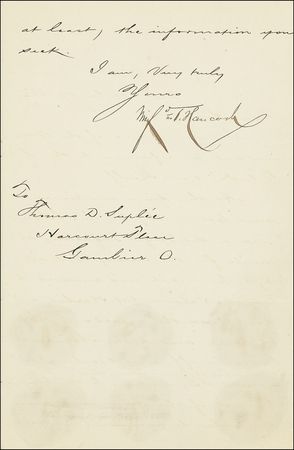 at least, the information you
seek.
I am, Very truly
Yours
Winfd S. Hancock
To
Thomas D. Suplée
Harcourt Place
Gambier O.